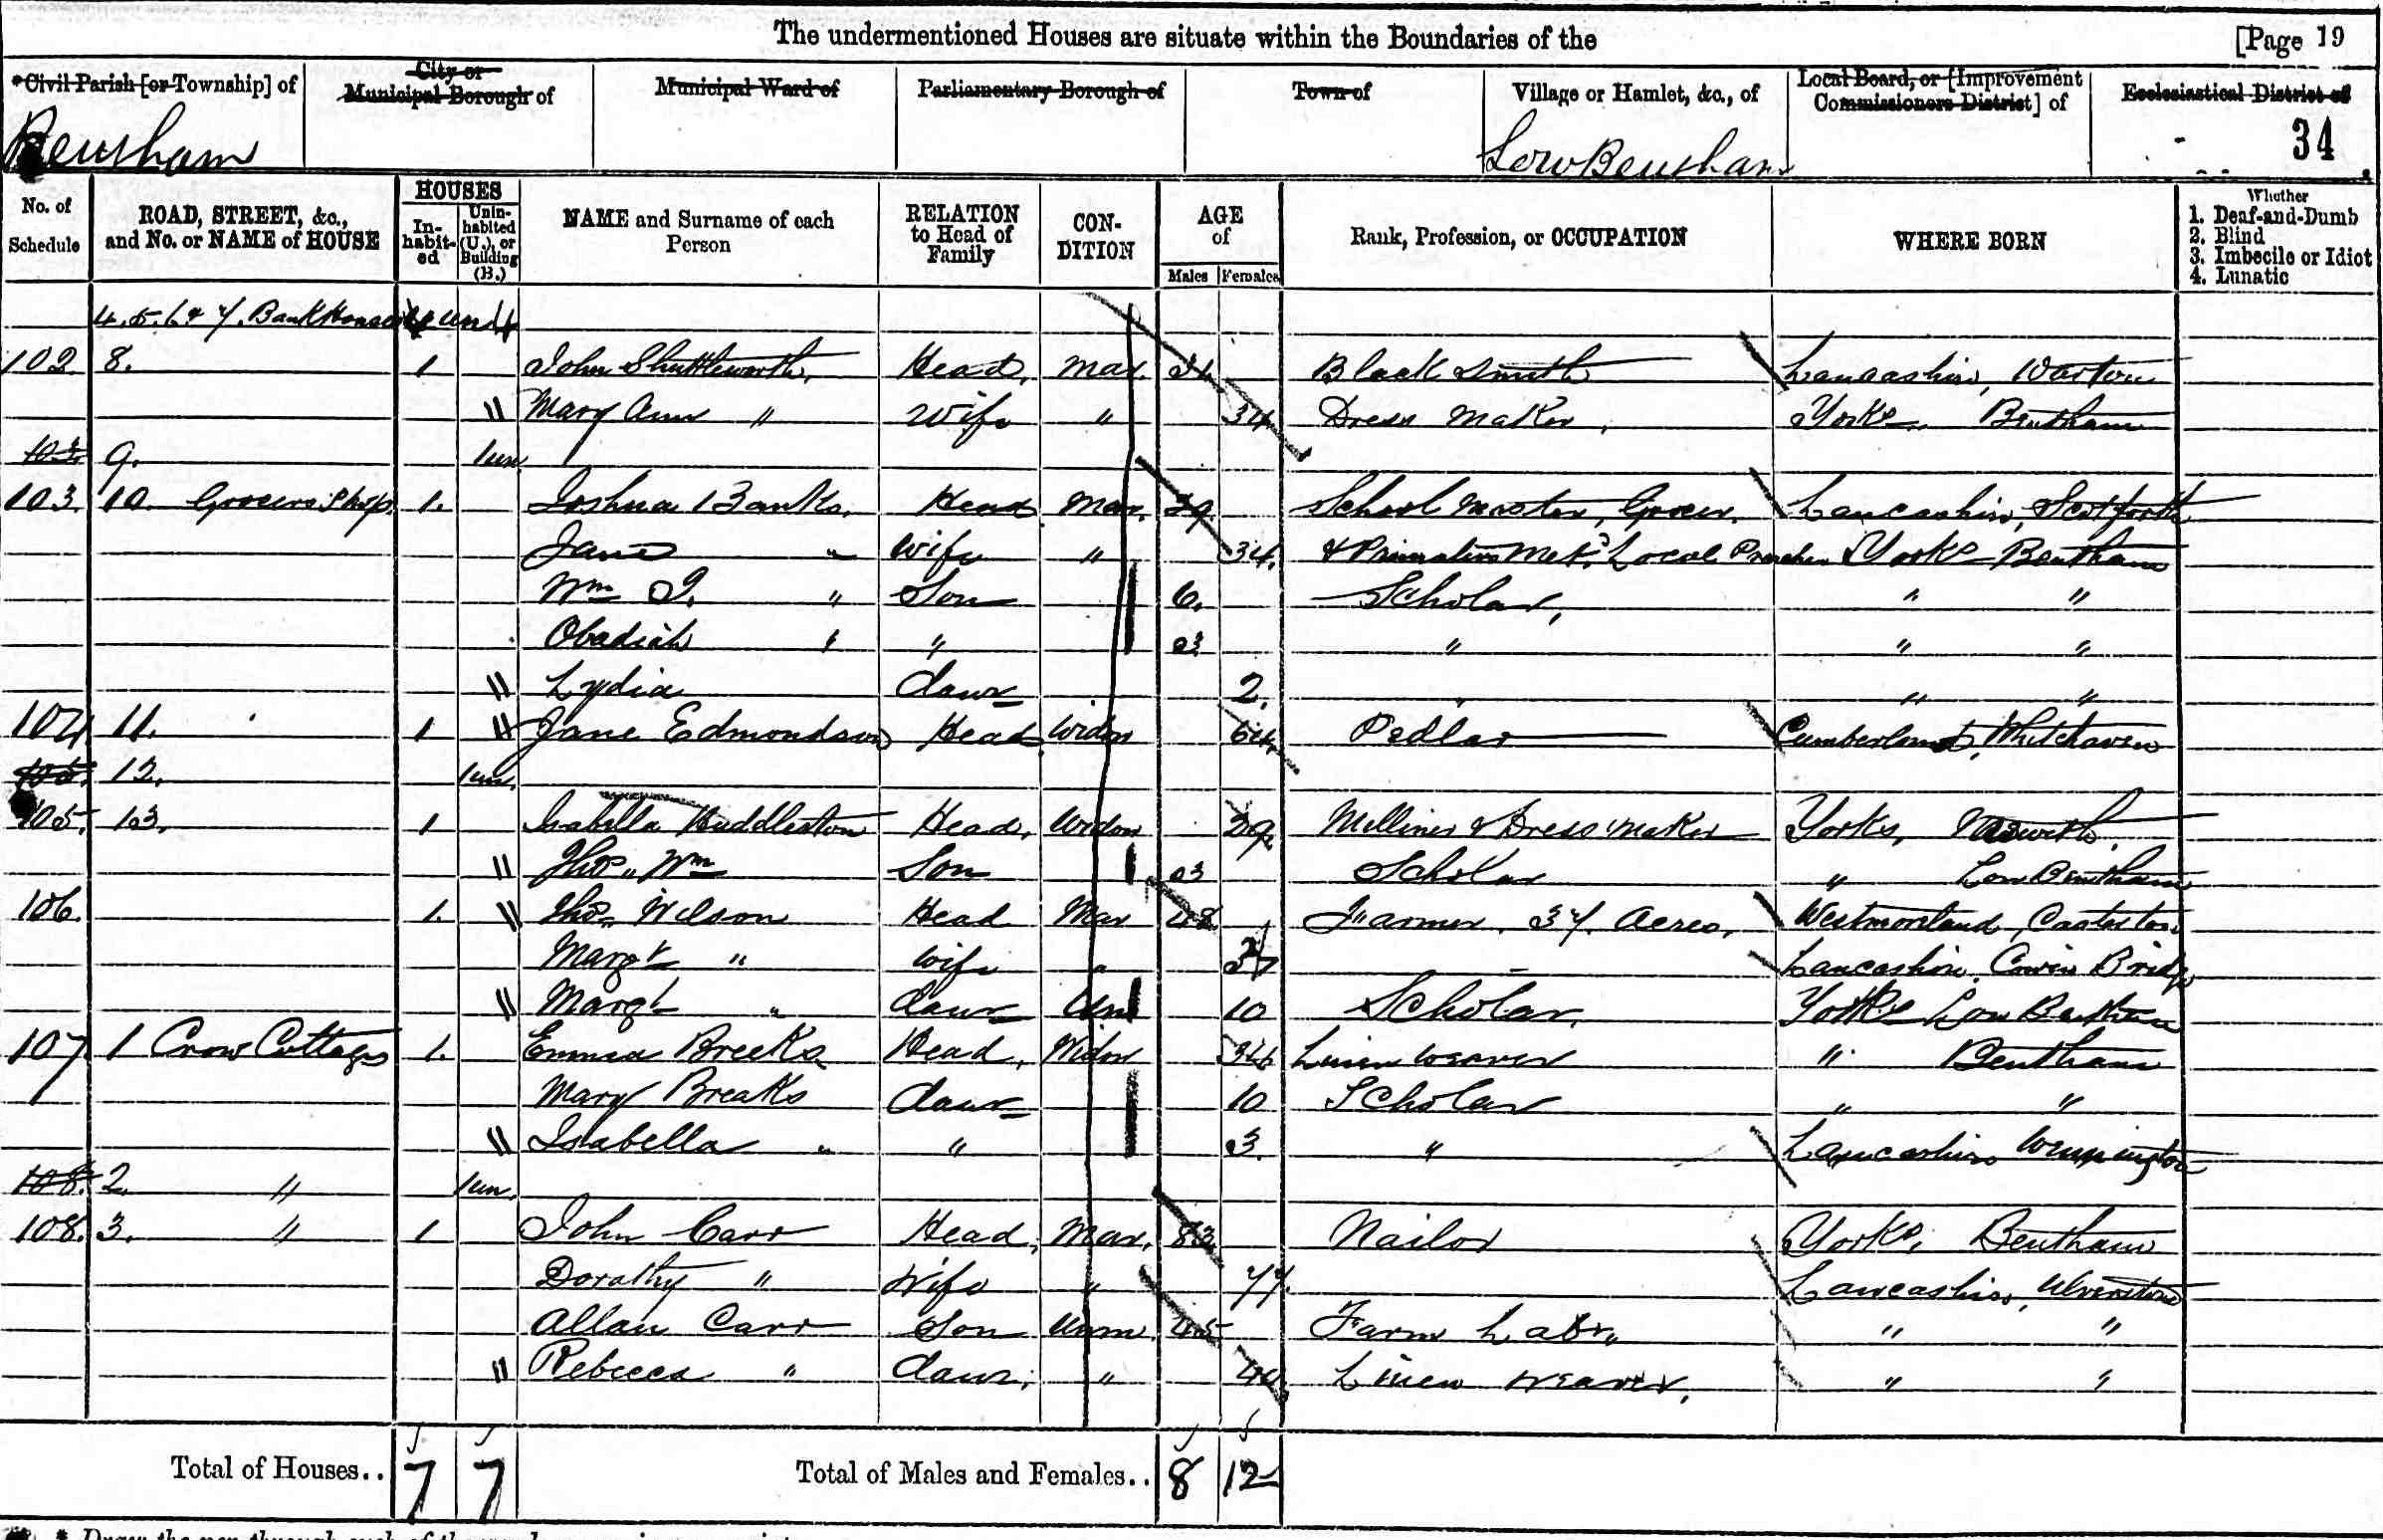 The undermentioned Houses are situate within the Boundaries of the [Page 19
Civil Parish [or Township] of City or Municipal Borough of Municipal Ward of Parliamentary Borough of Town of Village or Hamlet, &c., of Local Board, or [Improvement Commissioners District] of Ecclesiastical District of
Bentham Low Bentham 34
No. of Schedule ROAD, STREET, &c., and No. or NAME of HOUSE HOUSES Inhabited Uninhabited (U.), or Building (B.) NAME and Surname of each Person RELATION to Head of Family CONDITION AGE of Males Females Rank, Profession, or OCCUPATION WHERE BORN Whether 1. Deaf-and-Dumb 2. Blind 3. Imbecile or Idiot 4. Lunatic
4. 5. 6 & 7. Bank Houses un 4
102 8. 1 John Shuttleworth, Head, Mar. Black Smith Lancashire, Warton
Mary Ann " Wife " 34 Dress Maker, Yorks, Bentham
103 9. 1 un
103. 10 Grocers Shop. 1. Joshua Banks, Head Mar. 39 School Master, Grocer, Lancashire, Scotforth
Jane " Wife " 34. & Primative Met. Local Preacher Yorks Bentham
Wm J. " Son 6. Scholar, " "
Obadiah " " 3 " " "
Lydia daur 2. " " "
104 11. 1 Jane Edmondson Head Widow 64 Pedlar Cumberland, Whitehaven
105. 12. 1 un.
105. 13. 1 Isabella Huddleston Head, Widow 39 Milliner & Dress Maker Yorks,
Thos. Wm Son 3 Scholar " Low Bentham
106. 1. Thos. Wilson Head Mar 48 Farmer, 37 Acres, Westmorland, Casterton
Margt " Wife " Lancashire, Cowin Bridge
Margt " daur Un 10 Scholar, Yorks Low Bentham
107 1 Crow Cottages 1. Emma Breeks Head, Widow 36 Linen weaver " Bentham
Mary Breaks daur 10 Scholar " "
Isabella " " 3. " Lancashire
108. 2. " 1 un.
108. 3. " 1 John Carr Head, Mar. 83 Nailor Yorks, Bentham
Dorathy " Wife " 77. Lancashire, Ulverstone
Allan Carr Son Unm 45 Farm Labr., " "
Rebecca " daur, " 40 Linen weaver, " "
Total of Houses.. 7 7 Total of Males and Females.. 8 12